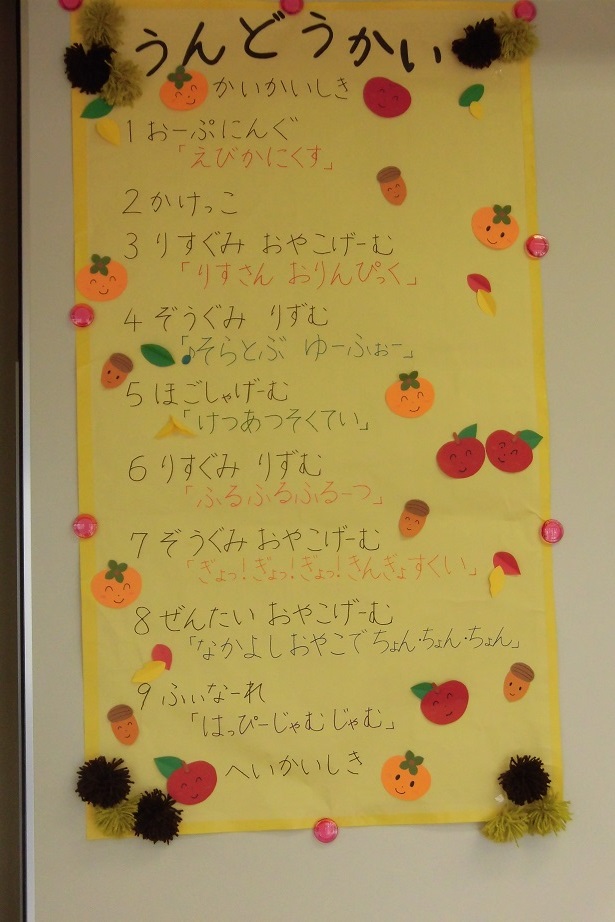 うんどうかい
かいかいしき
1 おーぷにんぐ
「えびかにくす」
2 かけっこ
3 りすぐみ おやこげーむ
「りすさん おりんぴっく」
4 ぞうぐみ りずむ
「♪そらとぶ ゆーふぉー」
5 ほごしゃげーむ
「けつあつそくてい」
6 りすぐみ りずむ
「ふるふるふるーつ」
7 ぞうぐみ おやこげーむ
「ぎょっ!ぎょっ!ぎょっ!きんぎょすくい」
8 ぜんたい おやこげーむ
「なかよしおやこで ちょん・ちょん・ちょん」
9 ふぃなーれ
「はっぴーじゃむじゃむ」
へいかいしき